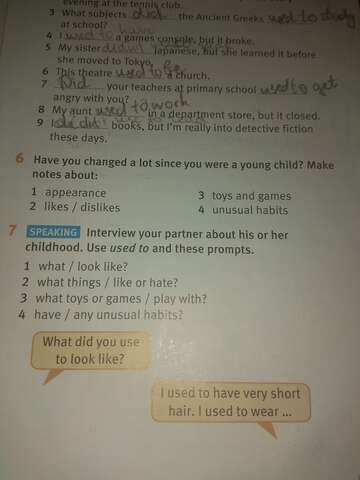 evening at the tennis club.
3 What subjects did the Ancient Greeks used to study
at school?
4 I used to have a games console, but it broke.
5 My sister didn't Japanese, but she learned it before
she moved to Tokyo.
6 This theatre used to be a church.
7 Did your teachers at primary school used to get
angry with you?
8 My aunt used to work in a department store, but it closed.
9 I books, but I'm really into detective fiction
these days.
6 Have you changed a lot since you were a young child? Make
notes about:
1 appearance
2 likes / dislikes
3 toys and games
4 unusual habits
7 SPEAKING Interview your partner about his or her
childhood. Use used to and these prompts.
1 what / look like?
2 what things / like or hate?
3 what toys or games / play with?
4 have / any unusual habits?
What did you use
to look like?
I used to have very short
hair. I used to wear ...